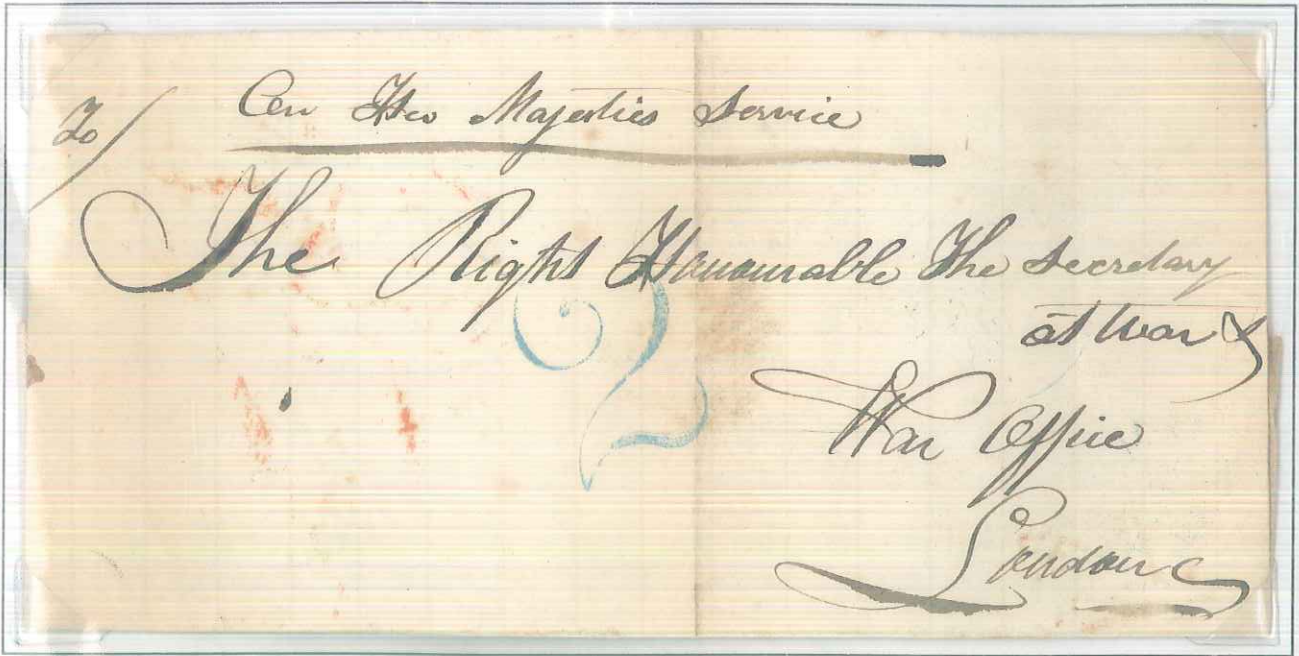 To/
On Her Majesties Service
The Right Honourable The Secretary
at War
War Office
London
2